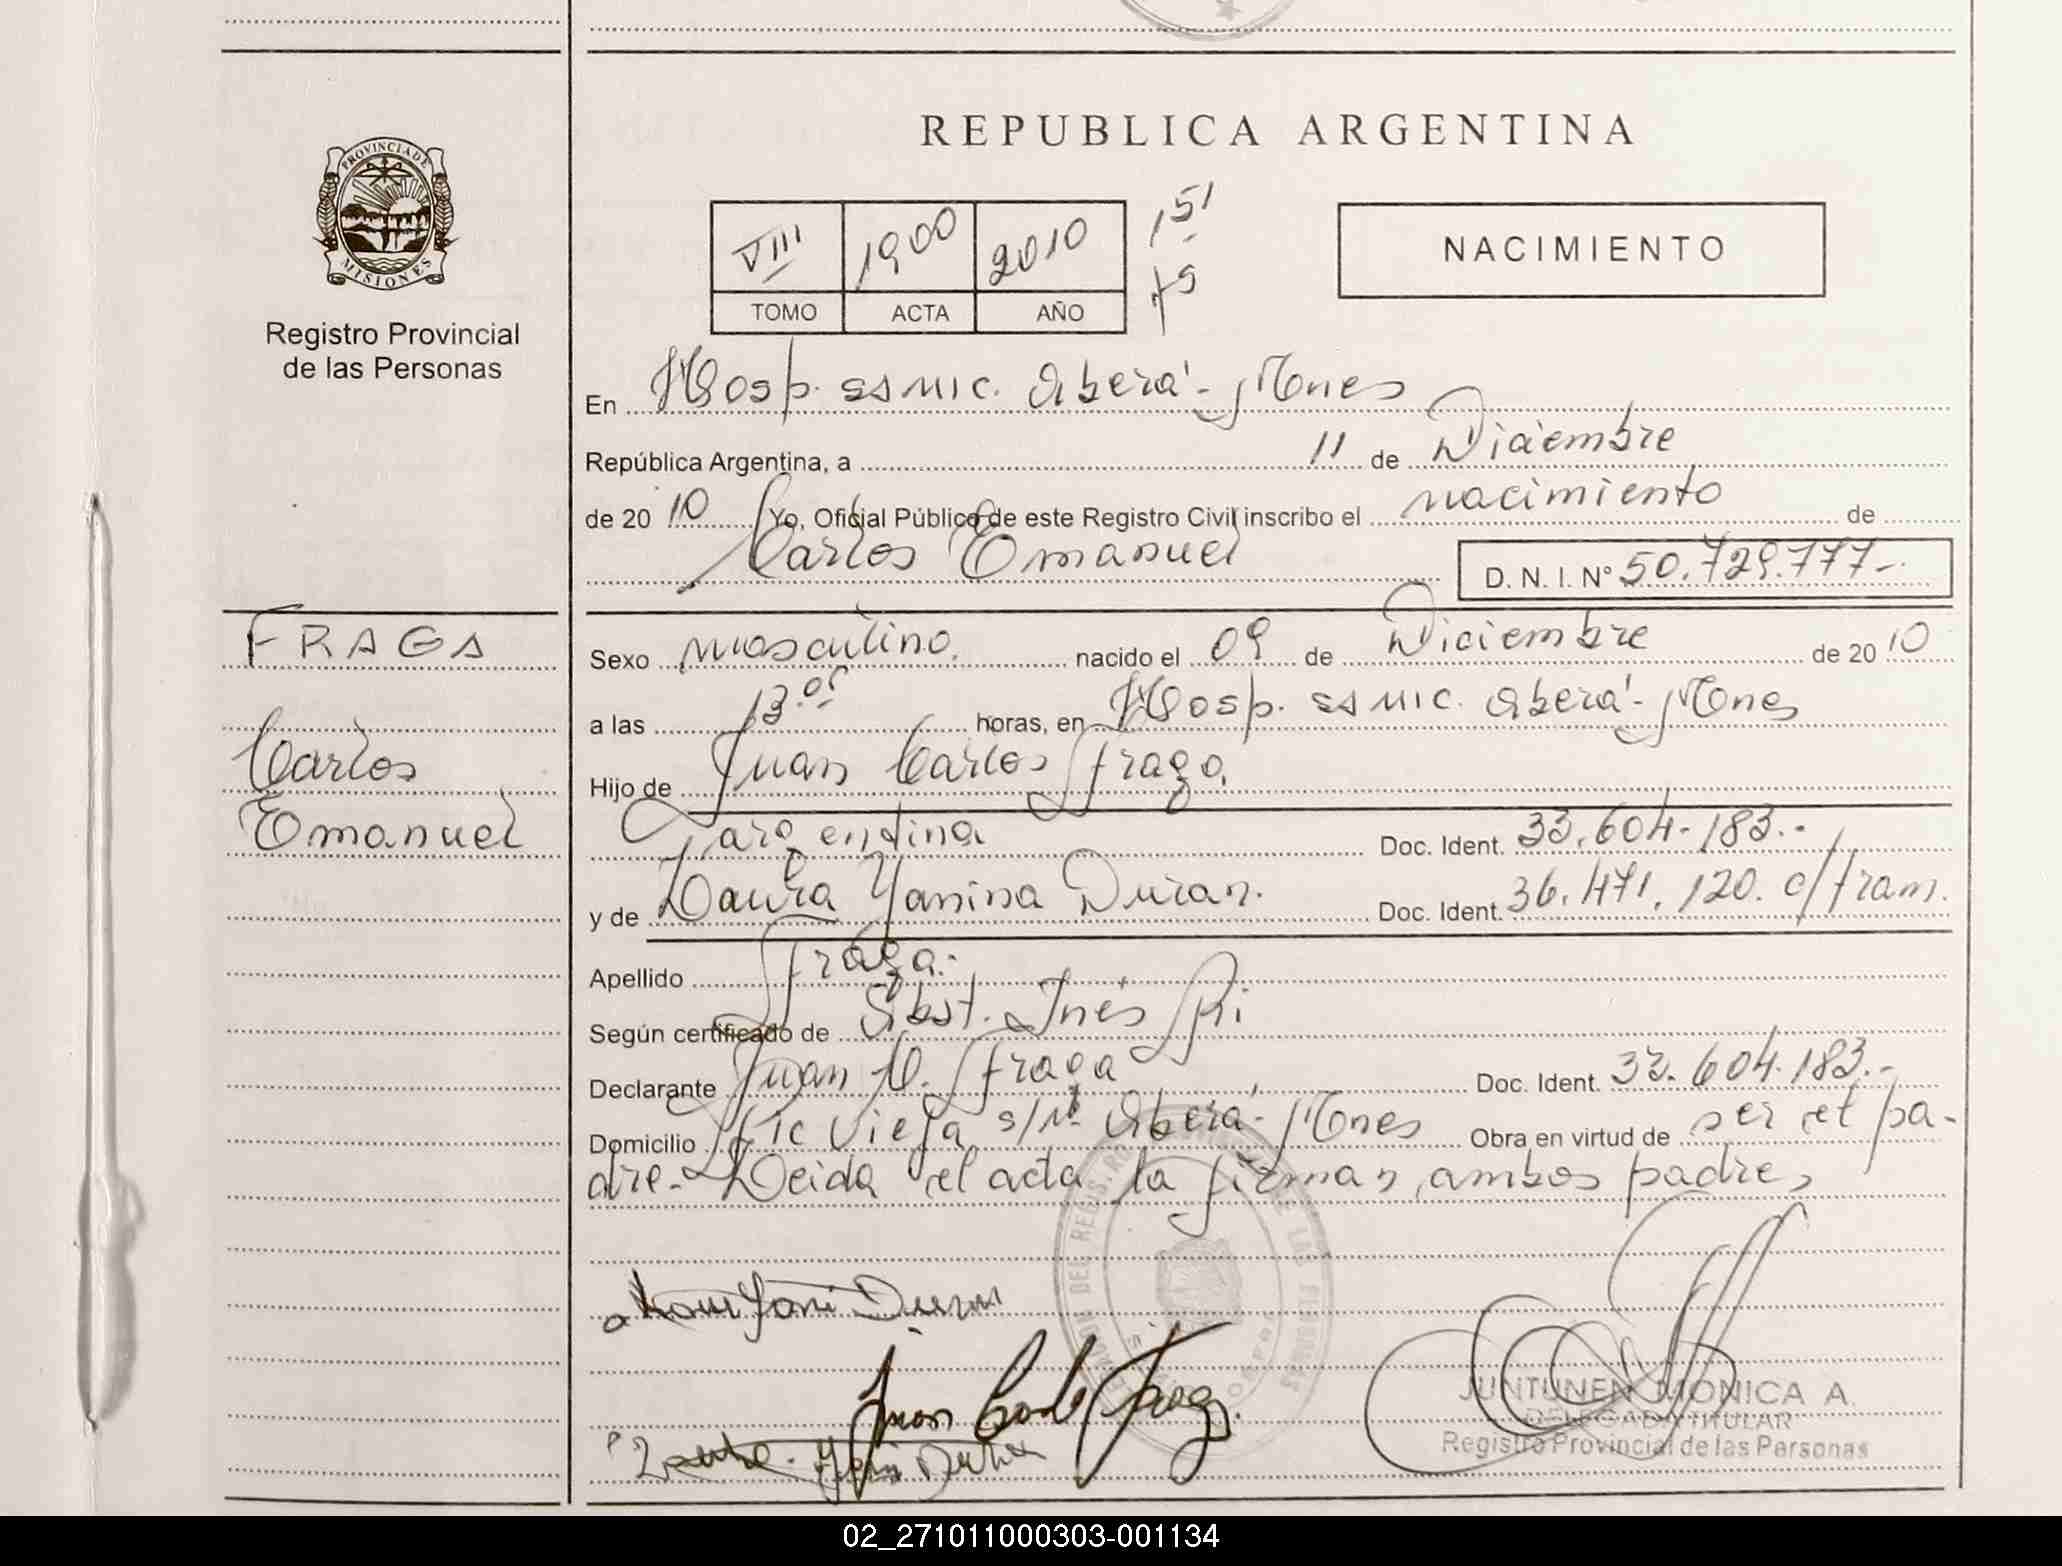 REPUBLICA ARGENTINA
PROVINCIA DE
MISIONES
Registro Provincial
de las Personas
VIII 1900 2010 151
TOMO ACTA AÑO
NACIMIENTO
En Hosp. ssmic. Oberá - Mnes
República Argentina, a 11 de Diciembre
de 20 10 Yo, Oficial Público de este Registro Civil inscribo el nacimiento de
Carlos Emanuel D. N. I. Nº 50.729.777-.
FRAGA
Carlos
Emanuel
Sexo masculino. nacido el 09 de Diciembre de 20 10
a las 13.05 horas, en Hosp. ssmic. Oberá - Mnes
Hijo de Juan Carlos Fraga,
argentina Doc. Ident. 33.604.183.-
y de Laura Yanina Duran. Doc. Ident. 36.471.120. c/fram.
Apellido Fraga.-
Según certificado de Obst. Inés Pi
Declarante Juan C. Fraga Doc. Ident. 33.604.183.-
Domicilio Vieja s/Nº Oberá - Mnes Obra en virtud de ser el pa-
dre.- Leida el acta la firman ambos padres
Juan Carlos Fraga.
JUNTUNEN MONICA A.
DELEGADA TITULAR
Registro Provincial de las Personas
02_271011000303-001134